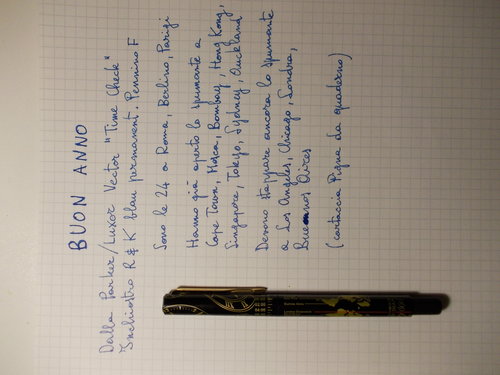 BUON ANNO
Dalla Parker/Luxor Vector "Time Check"
Inchiostro R & K blau permanent. Pennino F
Sono le 24 a Roma, Berlino, Parigi
Hanno già aperto lo spumante a
Cape Town, Mosca, Bombay, Hong Kong,
Singapore, Tokyo, Sydney, Auckland
Devono stappare ancora lo spumante
a Los Angeles, Chicago, Londra,
Buenos Aires
(cartaccia Pigna da quaderno)